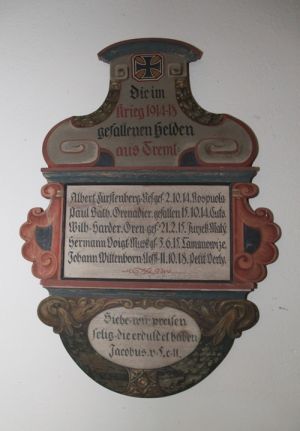 Die im
Krieg 1914-18
gefallenen Helden
aus Treml
Albert Fürstenberg Ref gef 2.10.14
Paul Bäth. Grenadier. gefallen 15.10.14
Wilh. Harder. Gren gef 21.2.15.
Hermann Voigt Musk gef 3.6.15
Johann Wittenborn 11.10.18. Petit Verly.
Siehe wir preisen
selig die erduldet haben
Jacobus. v. 5. c. 11.